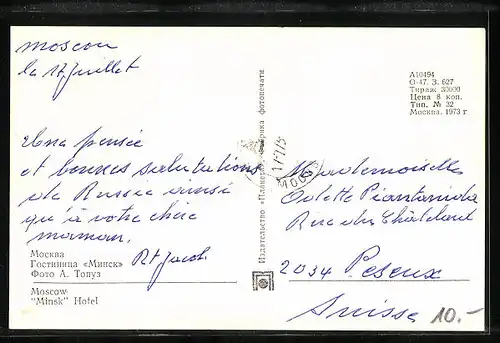 Moscou
le 17 Juillet
Une pensée
et bonnes salutations
de Russie ainsi
qu'à votre chère
maman.
R Jacot
Москва
Гостиница «Минск»
Фото А. Топуз
Moscow
"Minsk" Hotel
Издательство «Планета» Фабрика фотопечати
А10494
О-47. З. 627
Тираж 30000
Цена 8 коп.
Тип. № 32
Москва. 1973 г
Mademoiselle
Odette Piantanida
Rue du Châtelard
2034 Peseux
Suisse
10.-